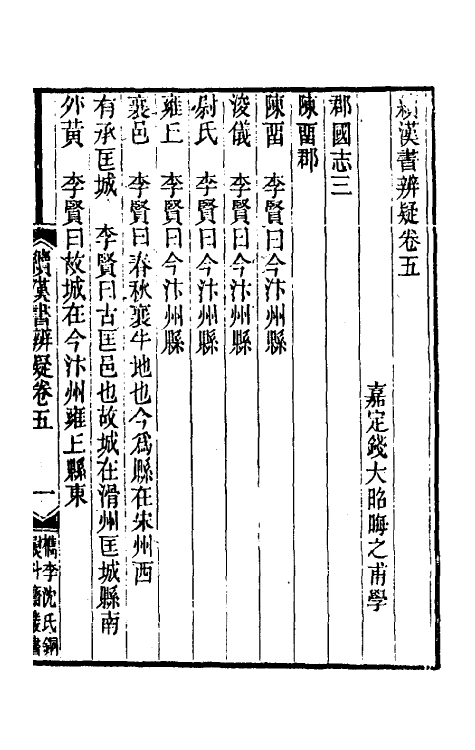 續漢書辨疑卷五
嘉定錢大昭晦之甫學
郡國志三
陳畱郡
陳畱　李賢曰今汴州縣
浚儀　李賢曰今汴州縣
尉氏　李賢曰今汴州縣
雍丘　李賢曰今汴州縣
襄邑　李賢曰春秋襄牛地也今爲縣在宋州西
有承匡城　李賢曰古匡邑也故城在滑州匡城縣南
外黃　李賢曰故城在今汴州雍丘縣東
續漢書辨疑卷五
一
檇李沈氏銅
叢書